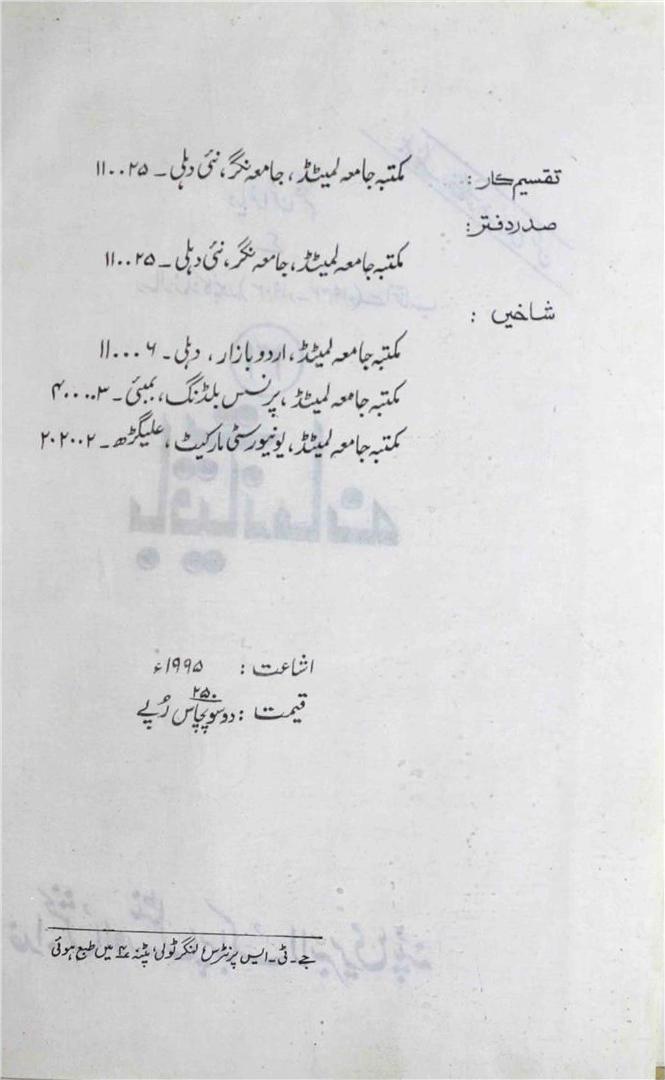 تقسیم کار: مکتبہ جامعہ لمیٹڈ، جامعہ نگر، نئی دہلی۔ ۱۱۰۰۲۵
صدر دفتر:
مکتبہ جامعہ لمیٹڈ، جامعہ نگر، نئی دہلی۔ ۱۱۰۰۲۵
شاخیں :
مکتبہ جامعہ لمیٹڈ، اردو بازار، دہلی۔ ۱۱۰۰۰۶
مکتبہ جامعہ لمیٹڈ، پرنسس بلڈنگ، بمبئی۔ ۴۰۰۰۰۳
مکتبہ جامعہ لمیٹڈ، یونیورسٹی مارکیٹ، علیگڑھ۔ ۲۰۲۰۰۲
اشاعت : ۱۹۹۵ء
۲۵۰
قیمت : دو سو پچاس رُپے
جے۔ٹی۔ایس پرنٹرس، لنگر ٹولی، پٹنہ ۴ میں طبع ہوئی